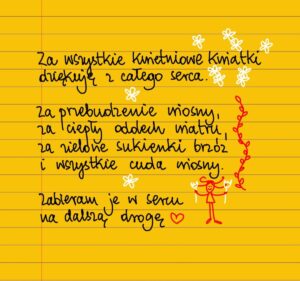 Za wszystkie kwietniowe kwiatki
dziękuję z całego serca.
za przebudzenie wiosny,
za ciepły oddech wiatru,
za zielone sukienki brzóz
i wszystkie cuda wiosny.
zabieram je w sercu
na dalszą drogę